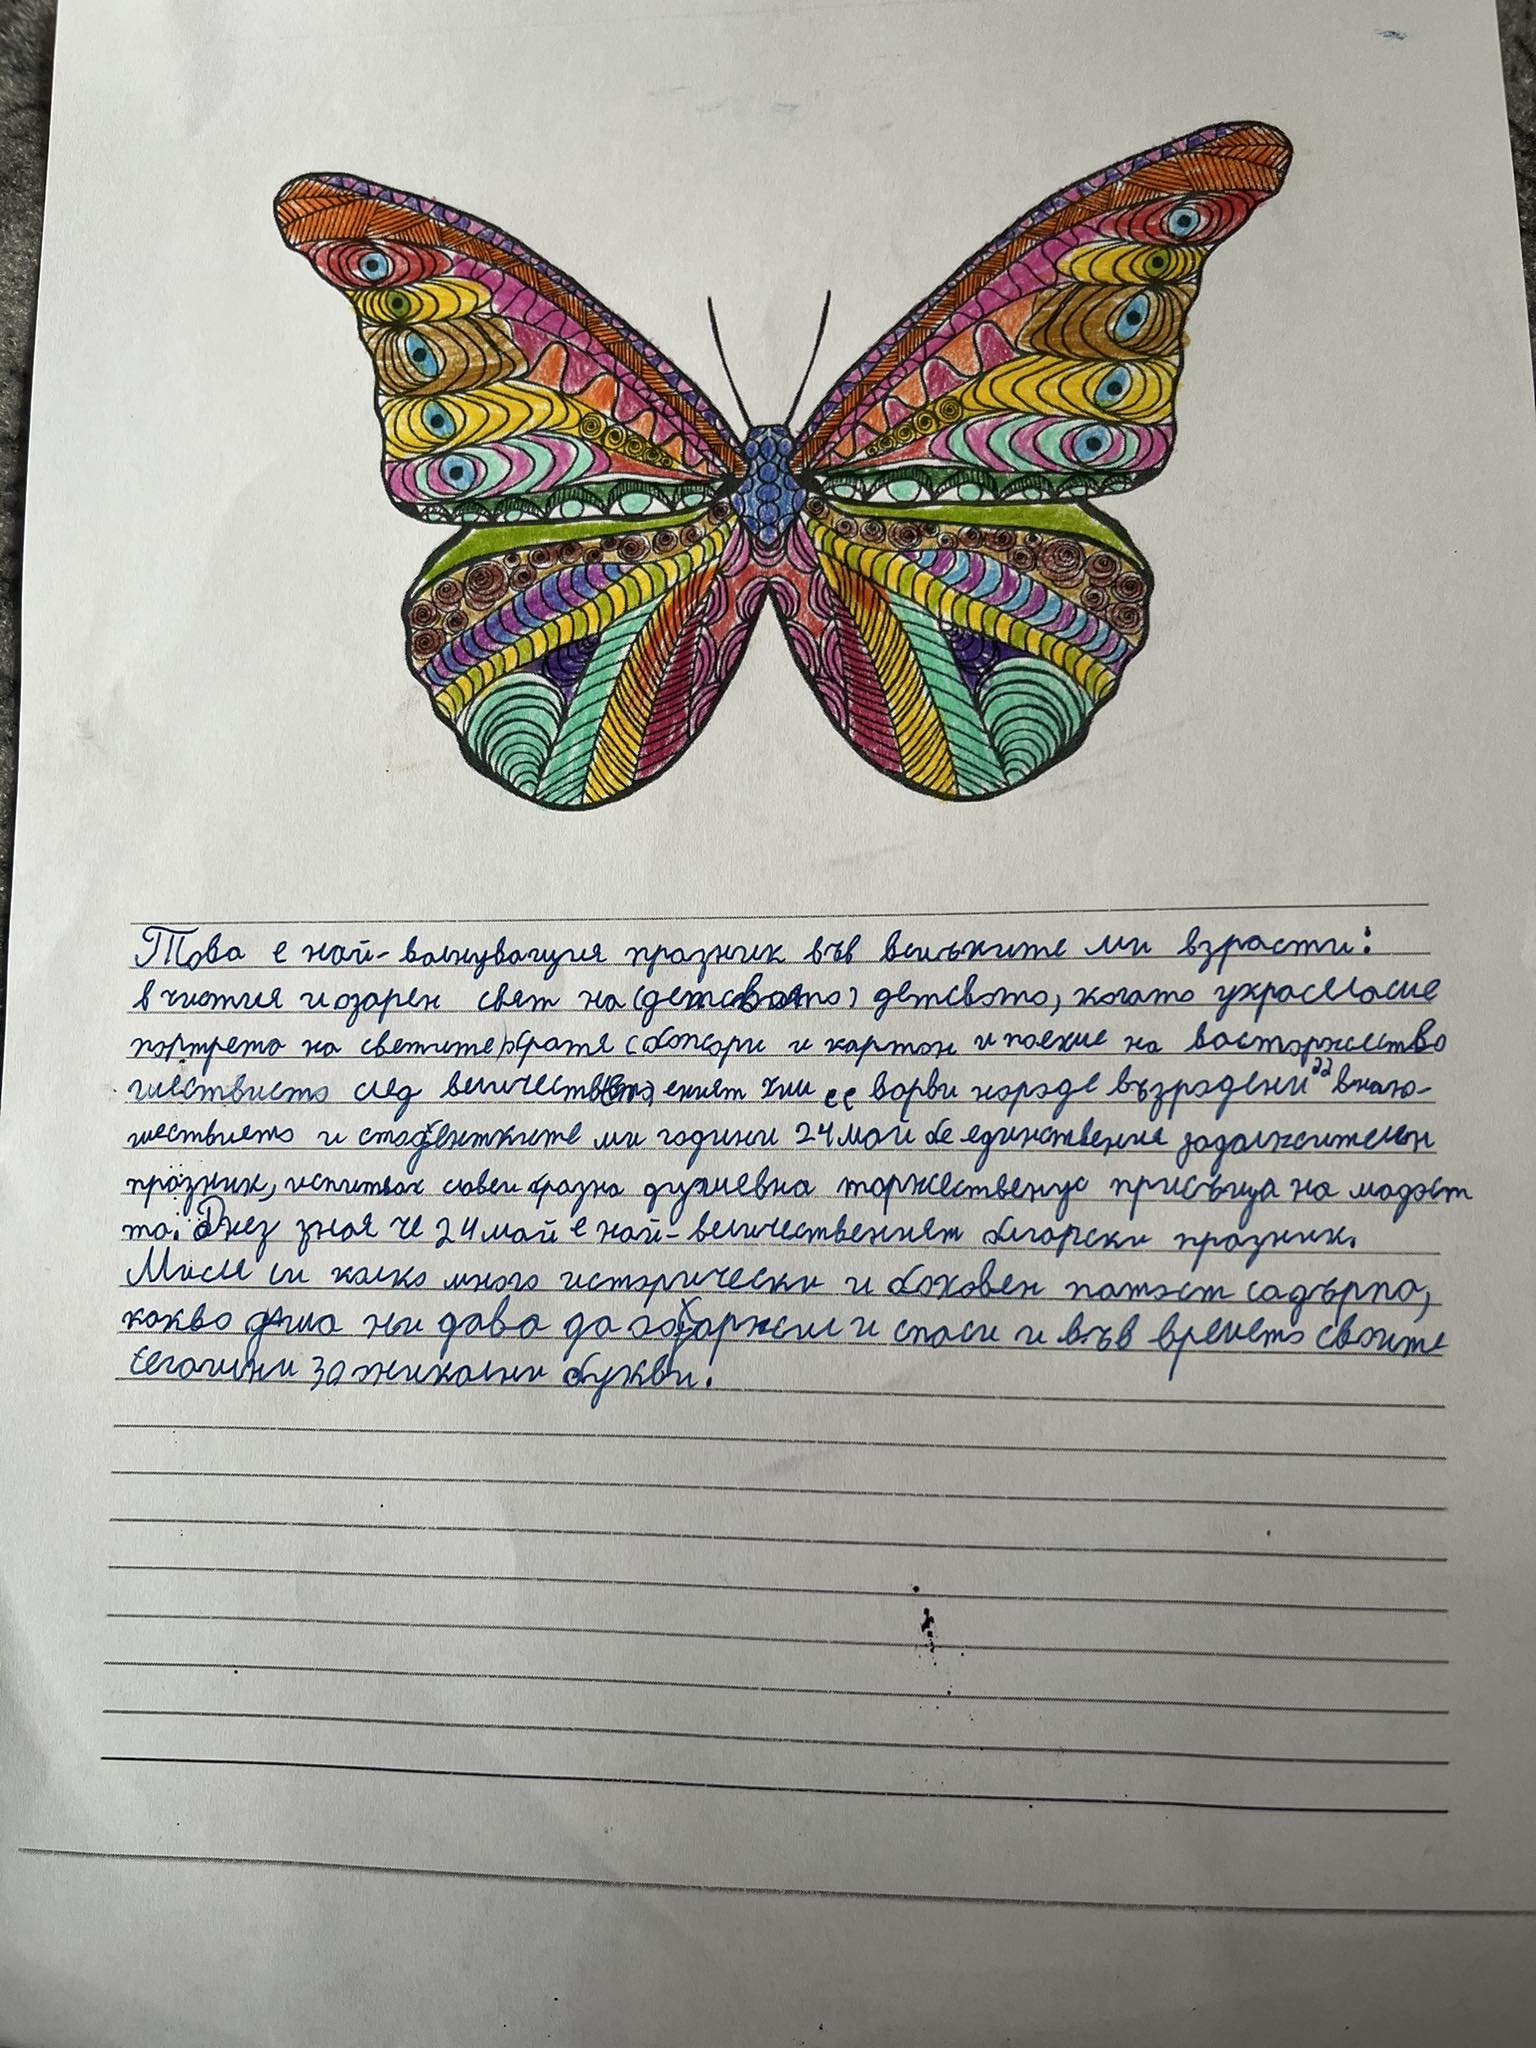 Това е най-валнуващия празник във всичките ми взрасти:
в чистия и озарен свят на (детсвоято) детсвото, когато украсяваме
портрета на светите братя с божори и картон и поехме на васторжество
шествието след величеств енният хим се варви народе възрадени" в наю-
шествието и студентките ми години 24 май бе единствения задалжителен
празник, изпитвах своеобразна душевна тържественус присъща на мадост
та. Днез зная че 24 май е най-величественият бгарски празник.
Мисле си колко много исторически и боховен патост садържа,
какво ни дава да и спаси и във времето своите
сегашни за букви.